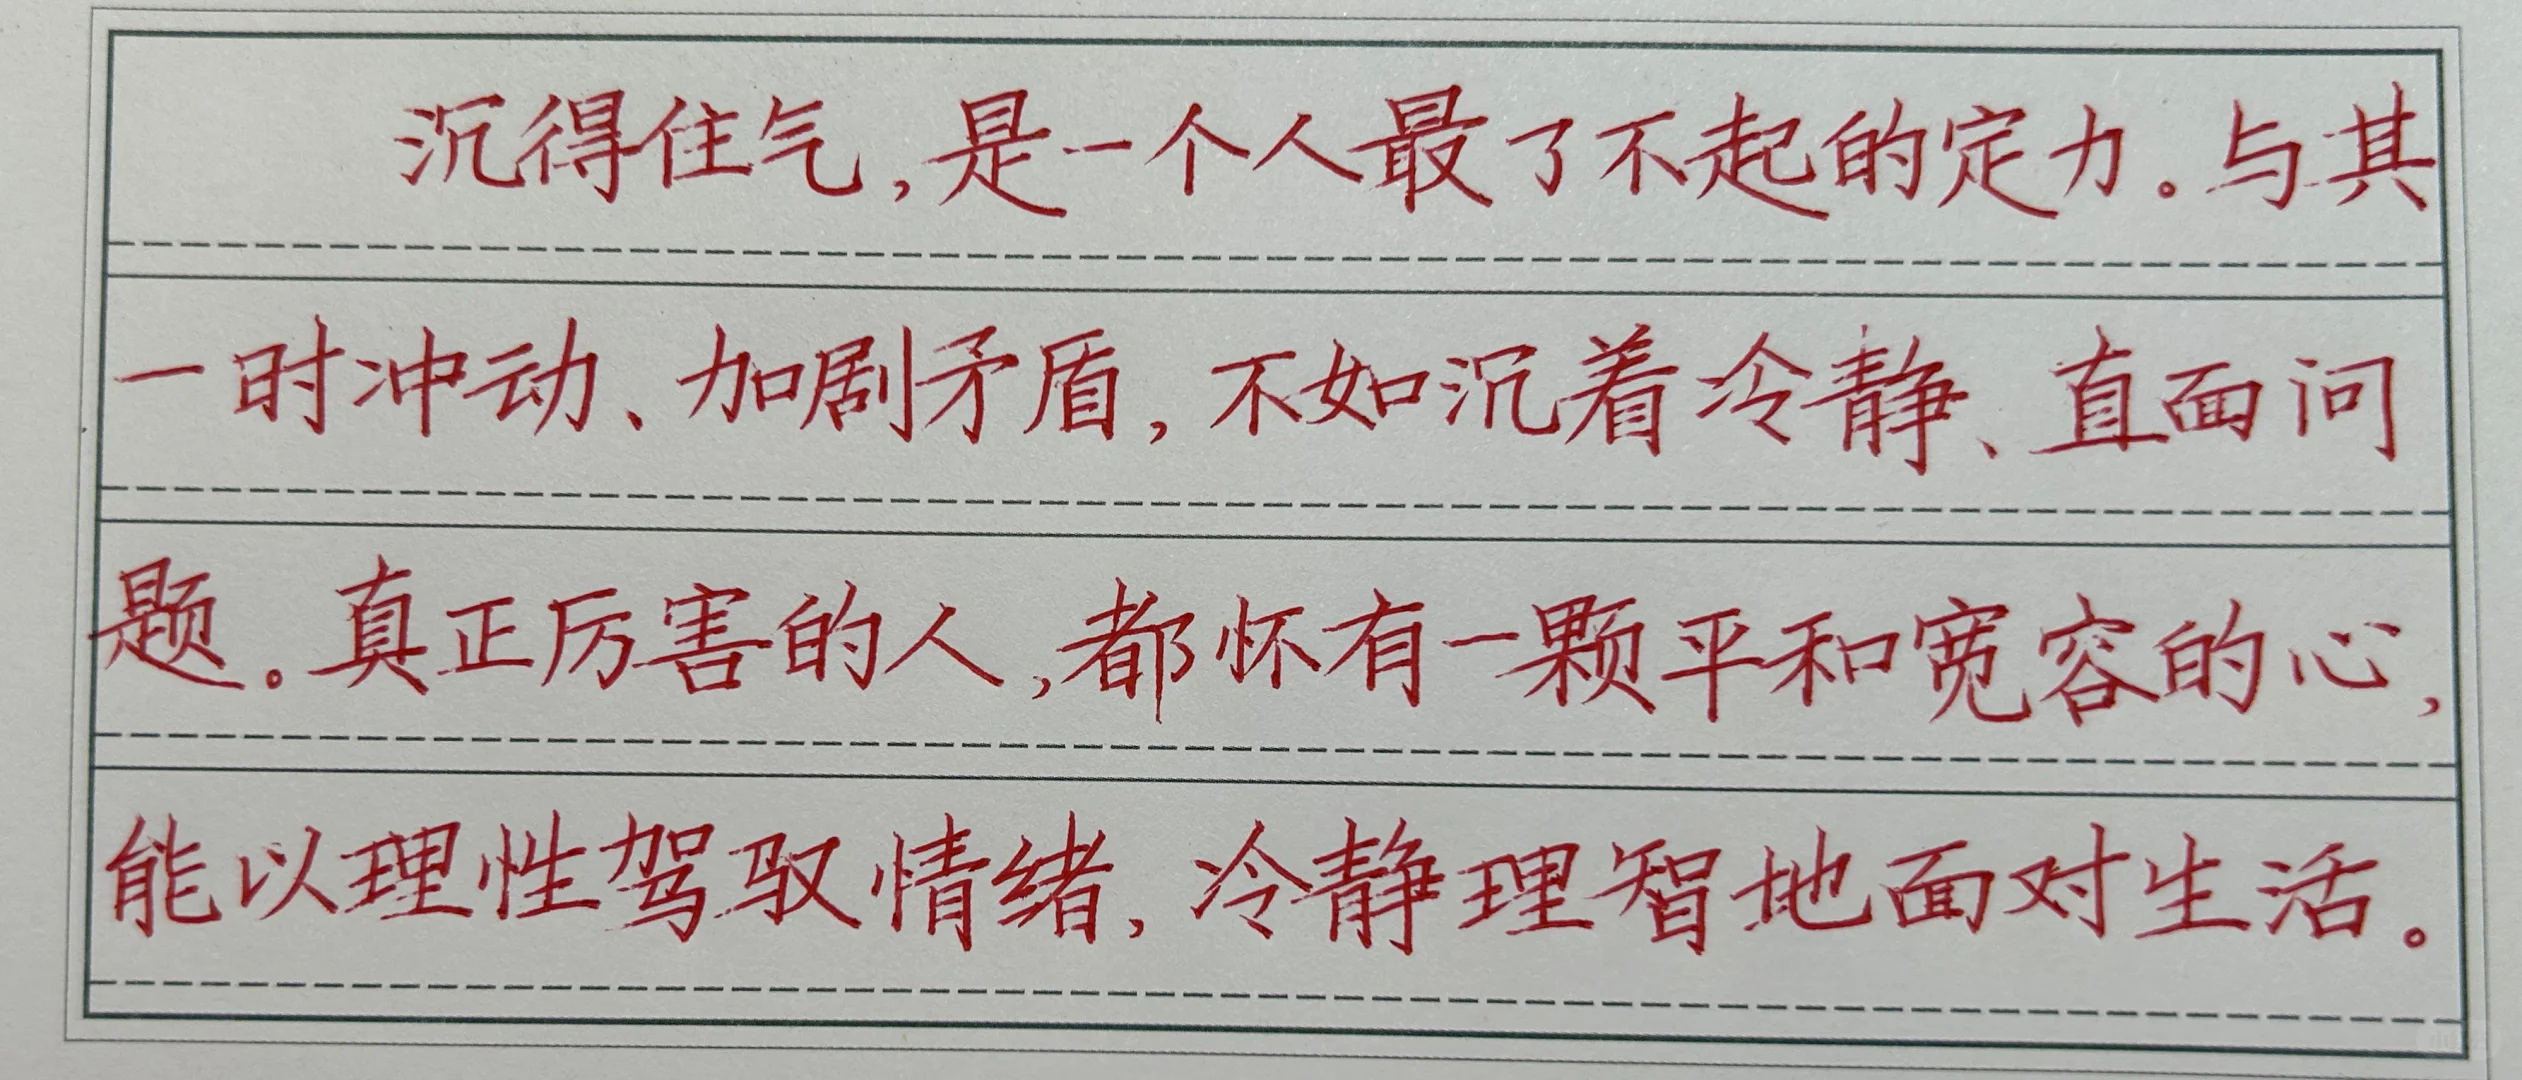 沉得住气,是一个人最了不起的定力。与其
一时冲动、加剧矛盾,不如沉着冷静、直面问
题。真正厉害的人,都怀有一颗平和宽容的心,
能以理性驾驭情绪,冷静理智地面对生活。